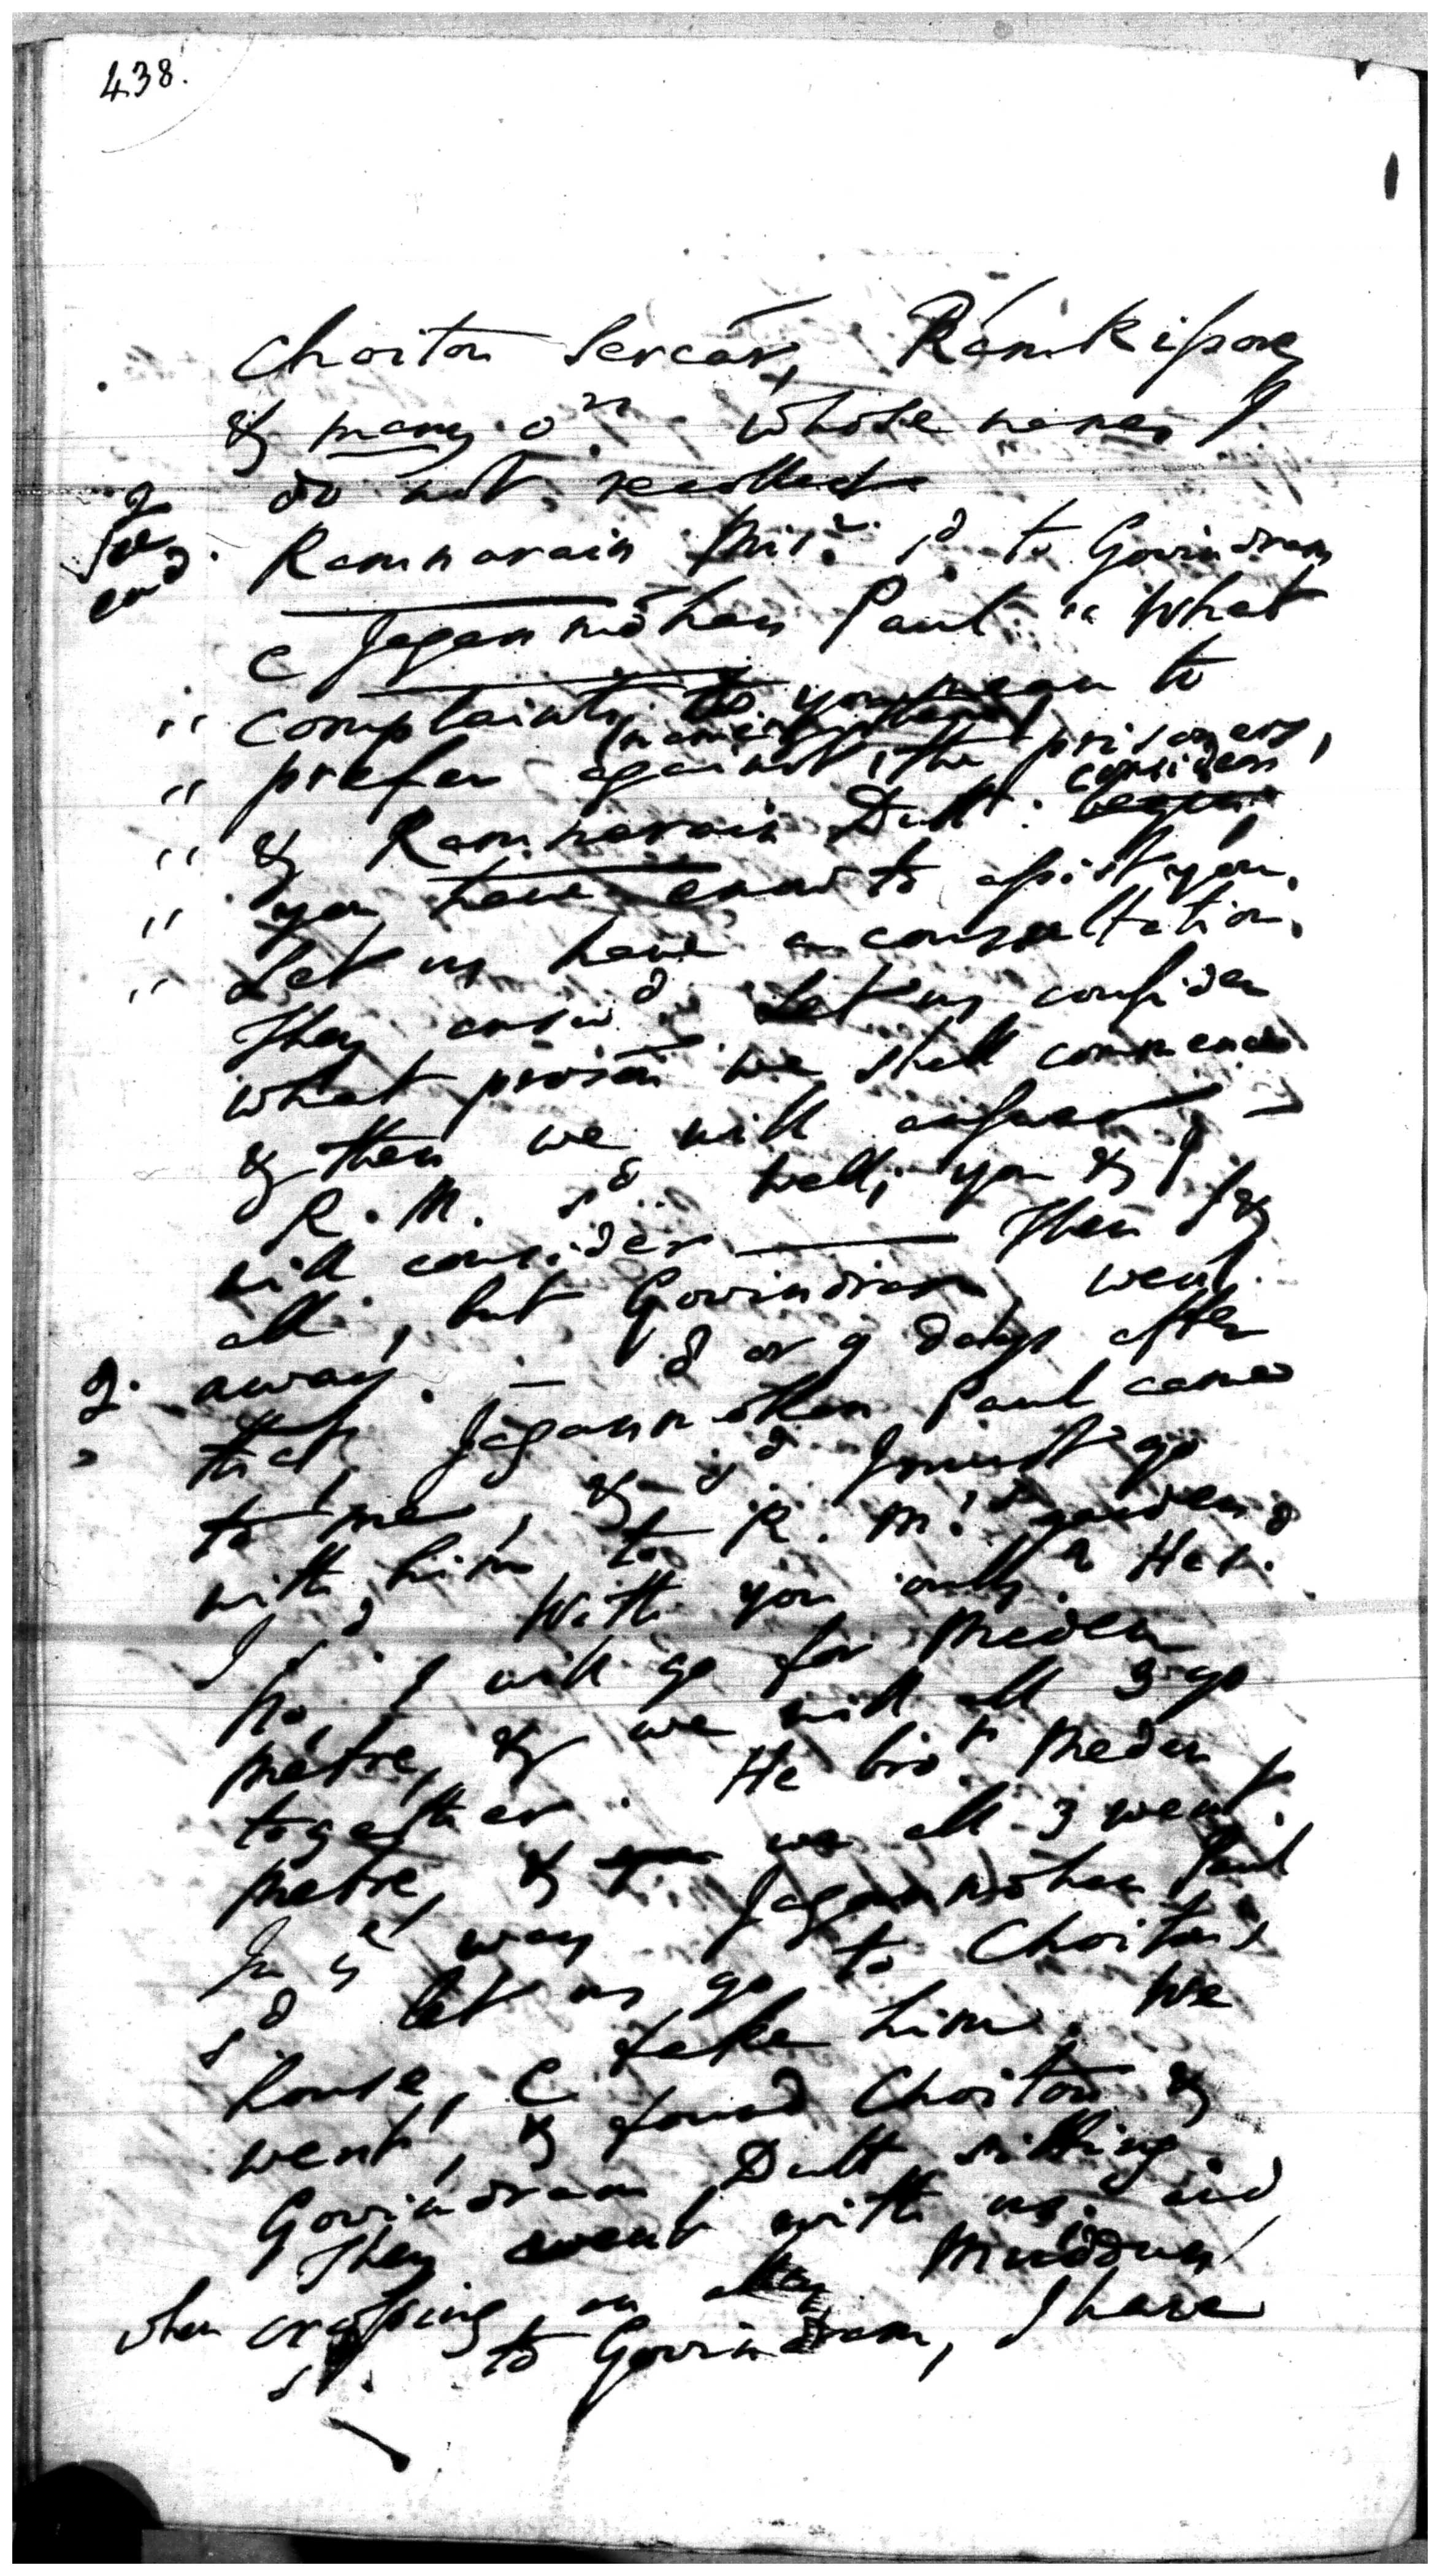 438.
Choiton Sercar, Ramkissore
& many o.rs whose names I
do not recollect.
Ramnarain Misr. sd. to Govindram
& Jaganmohan Paul. "What
" complaints do you mean to
" prefer against (naming them) the prisoners,
" & Ramnarain Dutt. consider
" you have enow to assist you.
" Let us have a consultation.
They answd. Let us consider
what prosn. we shall commence
& then we will answer, —
R. M. sd. Well, you & I
will consider — Then
all, but Govindram, went
away. — 8 or 9 days after
that, Jaganmohan Paul came
to me, & sd. I must go
with him to R. M.'s garden,
I sd. With you only? He sd.
No. I will go for Meden
Metre, & we will all 3 go
together. He bro.t Meden
Metre, & we all 3 went.
In ye way Jaganmohan Paul
sd. let us go to Choiton's
house, & take him. We
went, & found Choiton &
Govindram Dutt sitting.
They went with us. and
when crossing, Muddun
sd. to Govindram, I have